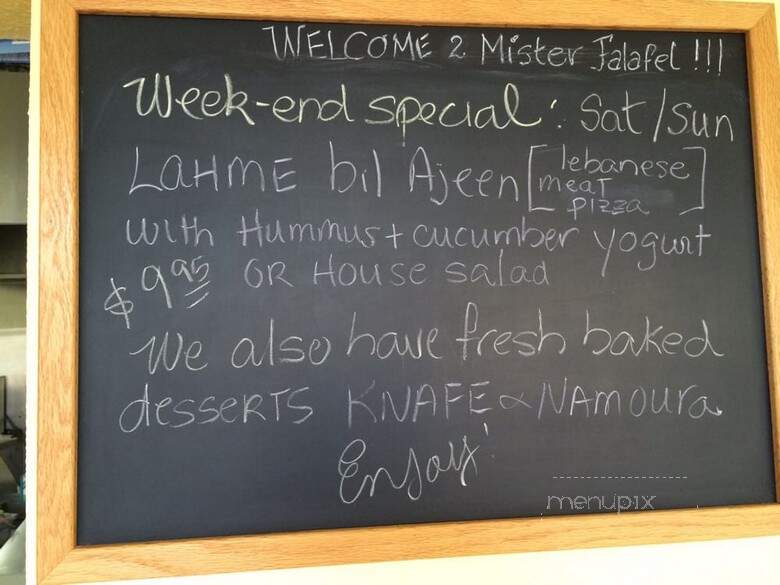 WELCOME 2 Mister Falafel !!!
Week-end special: Sat/Sun
LAHME bil Ajeen [lebanese meat pizza]
with Hummus + cucumber yogurt
$9.95 OR House salad
We also have fresh baked
desserts KNAFE & NAMOURA
Enjoy!
menupix